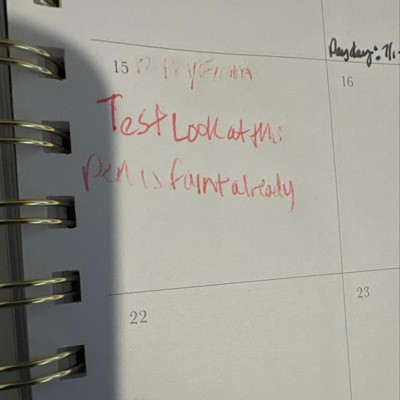 Payday: 7/1
15
16
Test Look at this
Pen is faint already
22
23